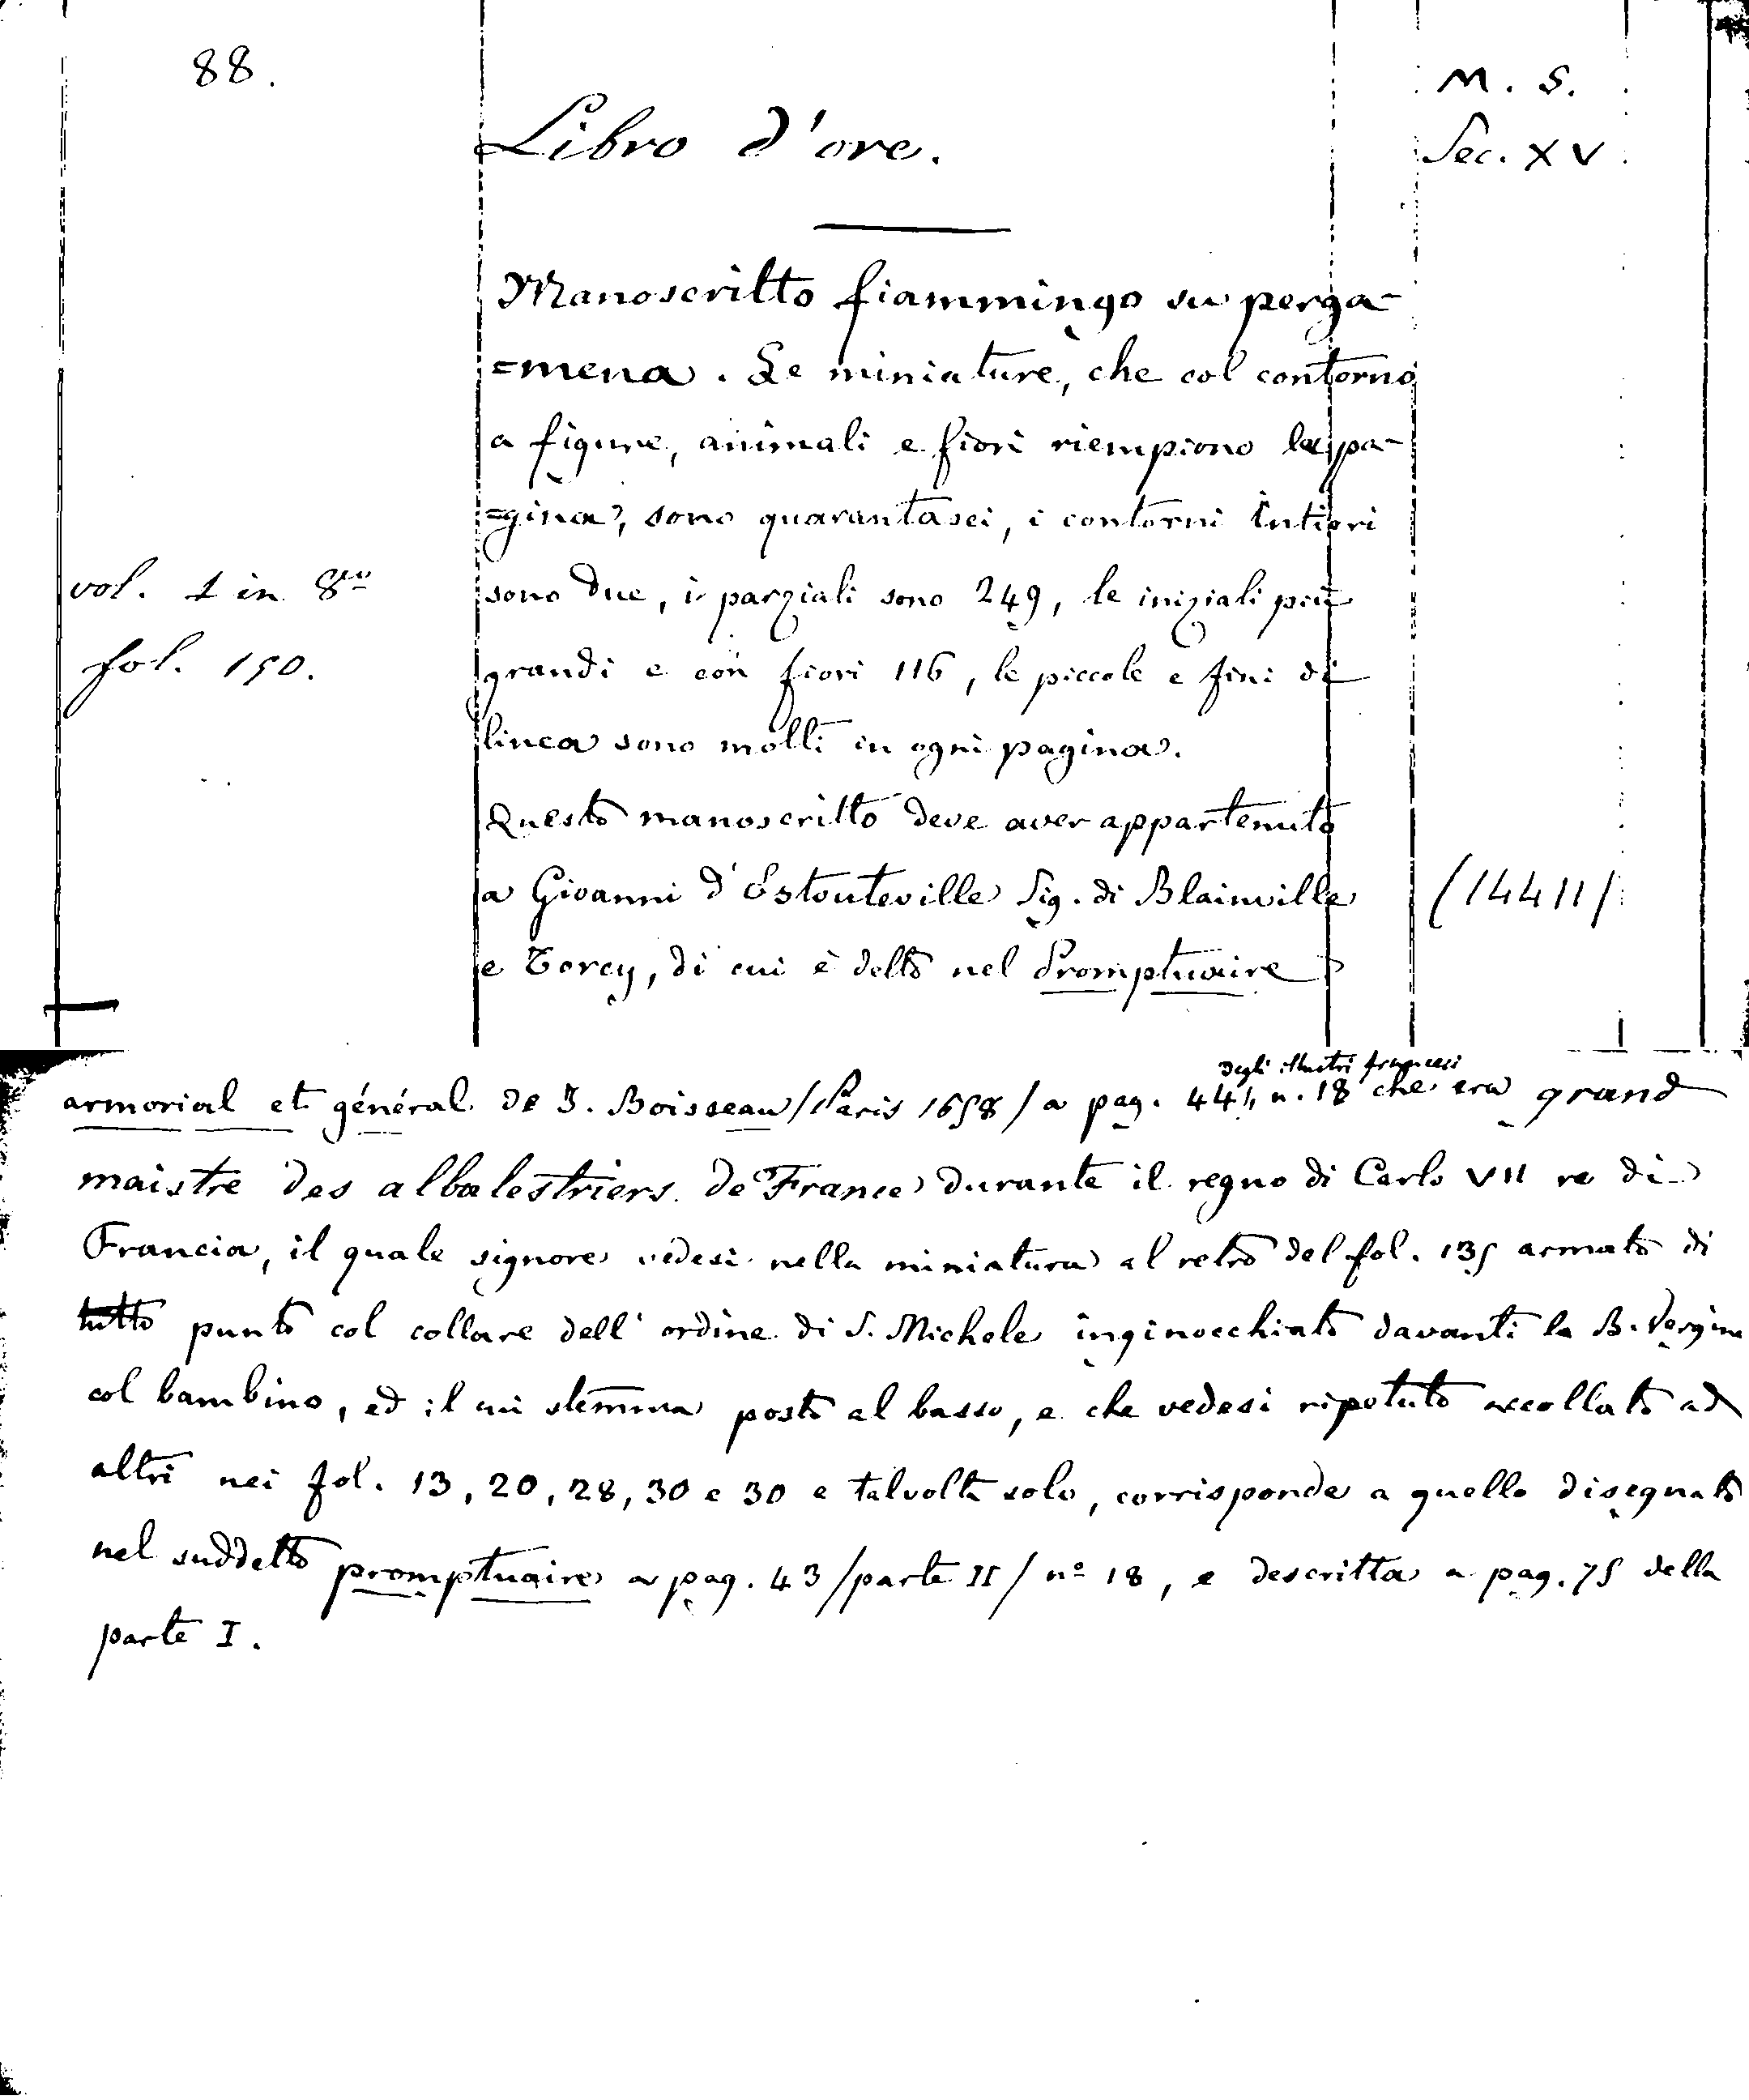 88.
M. S.
Libro d'ore.
Sec. XV
Manoscritto fiammingo su perga-
=mena. Le miniature, che col contorno
a figure, animali e fiori riempiono la pa-
=gina, sono quarantasei, i contorni intieri
vol. 1 in 8vo
sono due, i parziali sono 249, le iniziali più
fol. 150.
grandi e con fiori 116, le piccole e fini di
linea sono molti in ogni pagina.
Questo manoscritto deve aver appartenuto
a Giovanni d'Estouteville Sig. di Blainville
(14411)
e Torcy, di cui è detto nel Promptuaire
degli illustri francesi
armorial et général de J. Boisseau /Paris 1658/ a pag. 44, n. 18 che era grand
maistre des albalestriers de France durante il regno di Carlo VII re di
Francia, il quale signore vedesi nella miniatura al retro del fol. 135 armato di
tutto punto col collare dell'ordine di S. Michele inginocchiato davanti la B. Vergine
col bambino, ed il cui stemma posto al basso, e che vedesi ripetuto accollato ad
altri nei fol. 13, 20, 28, 30 e 30 e talvolta solo, corrisponde a quello disegnato
nel suddetto promptuaire a pag. 43 /parte II/ nº 18, e descritta a pag. 75 della
parte I.